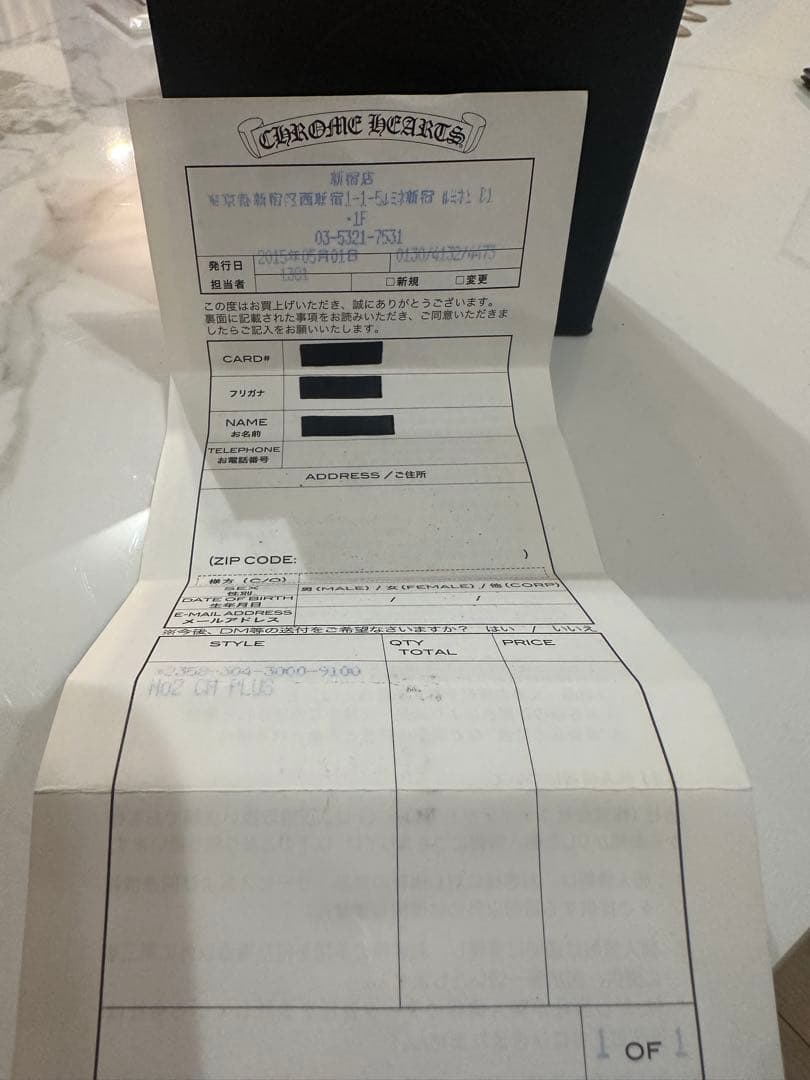 CHROME HEARTS
新宿店
東京都新宿区西新宿1-1-5ルミネ新宿 ルミネ1
・1F
03-5321-7531
発行日 2015年05月01日 0130/4132/4473
担当者 1381 □新規 □変更
この度はお買上げいただき、誠にありがとうございます。
裏面に記載された事項をお読みいただき、ご同意いただきま
したらご記入をお願いいたします。
CARD#
フリガナ
NAME
お名前
TELEPHONE
お電話番号
ADDRESS /ご住所
(ZIP CODE: )
様方 (C/O)
SEX
性別
男(MALE) / 女(FEMALE) / 他(CORP)
DATE OF BIRTH
生年月日
/ /
E-MAIL ADDRESS
メールアドレス
※今後、DM等の送付をご希望なさいますか? はい / いいえ
STYLE QTY PRICE
TOTAL
*2358-304-3000-9100
No2 CM PLUS
1 OF 1